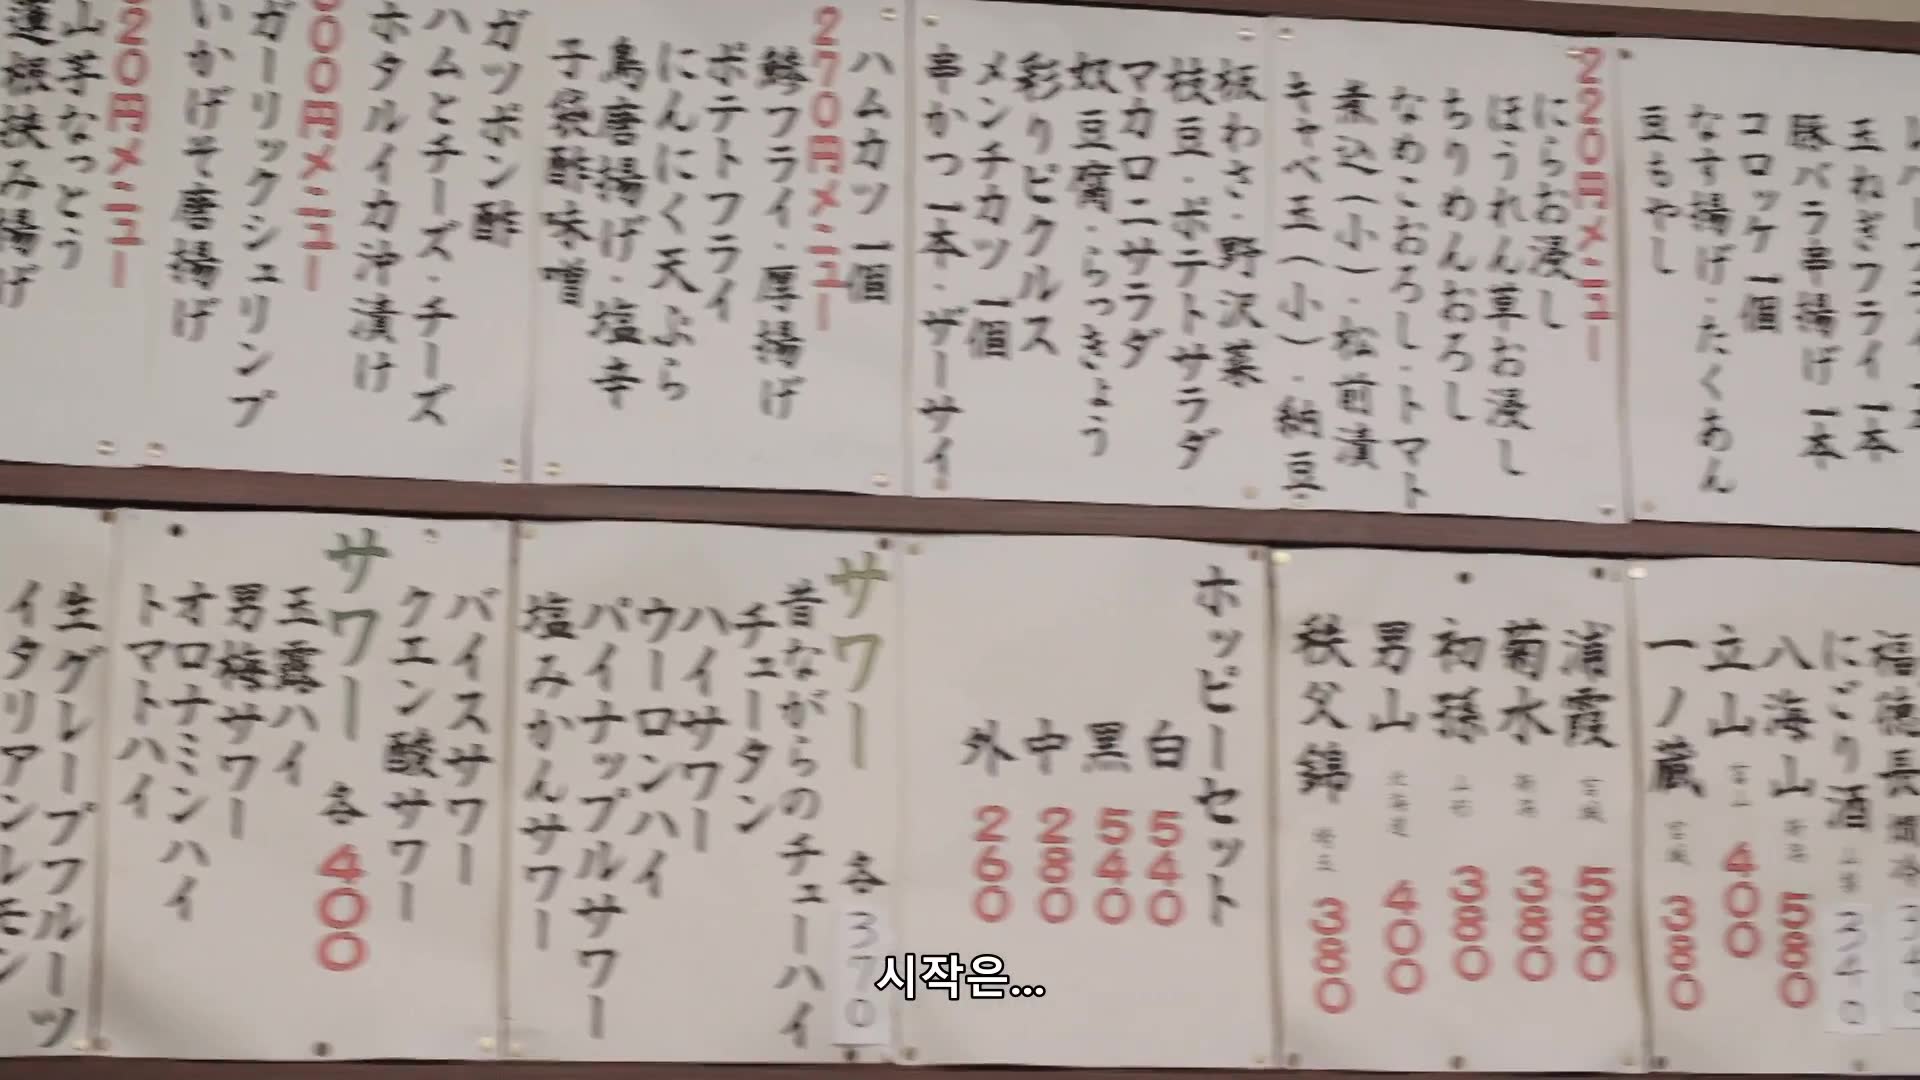 玉ねぎフライ一本
豚バラ串揚げ一本
コロッケ一個
なす揚げ・たくあん
豆もやし
220円メニュー
にらお浸し
ほうれん草お浸し
ちりめんおろし
なめこおろし・トマト
煮込(小)・松前漬
キャベ玉(小)・納豆
板わさ・野沢菜
枝豆・ポテトサラダ
マカロニサラダ
奴豆腐・らっきょう
彩りピクルス
メンチカツ一個
串かつ一本・ザーサイ
ハムカツ一個
270円メニュー
鯵フライ・厚揚げ
ポテトフライ
にんにく天ぷら
鳥唐揚げ・塩辛
子袋酢味噌
ガツポン酢
ハムとチーズ・チーズ
ホタルイカ沖漬け
00円メニュー
ガーリックシュリンプ
いかげそ唐揚げ
20円メニュー
山芋なっとう
蓮根挟み揚げ
福徳長
にごり酒 340
八海山 新潟 580
立山 富山 400
一ノ蔵 宮城 380
浦霞 宮城 580
菊水 新潟 380
初孫 山形 380
男山 北海道 400
秩父錦 埼玉 380
ホッピーセット
白 540
黒 540
中 280
外 260
サワー 各370
昔ながらのチューハイ
チュータン
ハイサワー
ウーロンハイ
パイナップルサワー
塩みかんサワー
バイスサワー
クエン酸サワー
サワー 各400
玉露ハイ
男梅サワー
オロナミンハイ
トマトハイ
生グレープフルーツ
イタリアンレモン
시작은...